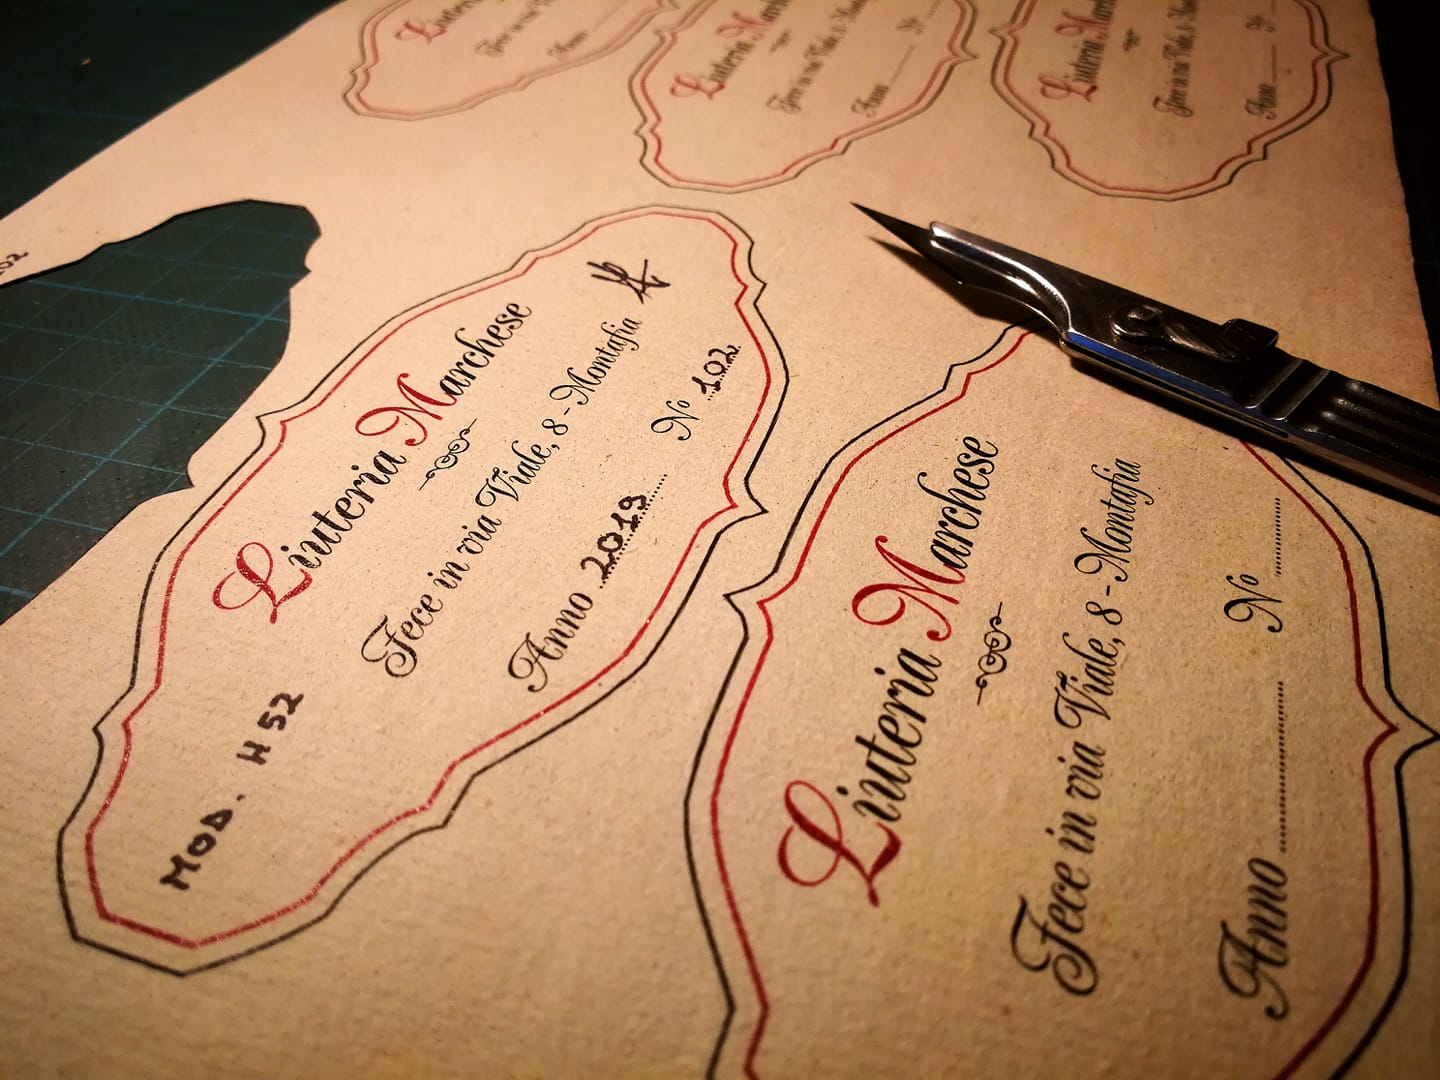 Liuteria Marchese
Fece in via Viale, 8 - Montafia
Anno
Liuteria Marchese
Fece in via Viale, 8 - Montafia
Anno Nº
Liuteria
Fece in via Viale, 8 -
Anno Nº
Liuteria Marchese
Fece in via Viale, 8 - Montafia
Anno 2019 Nº 102
MOD. H 52
Liuteria Marchese
Fece in via Viale, 8 - Montafia
Anno Nº